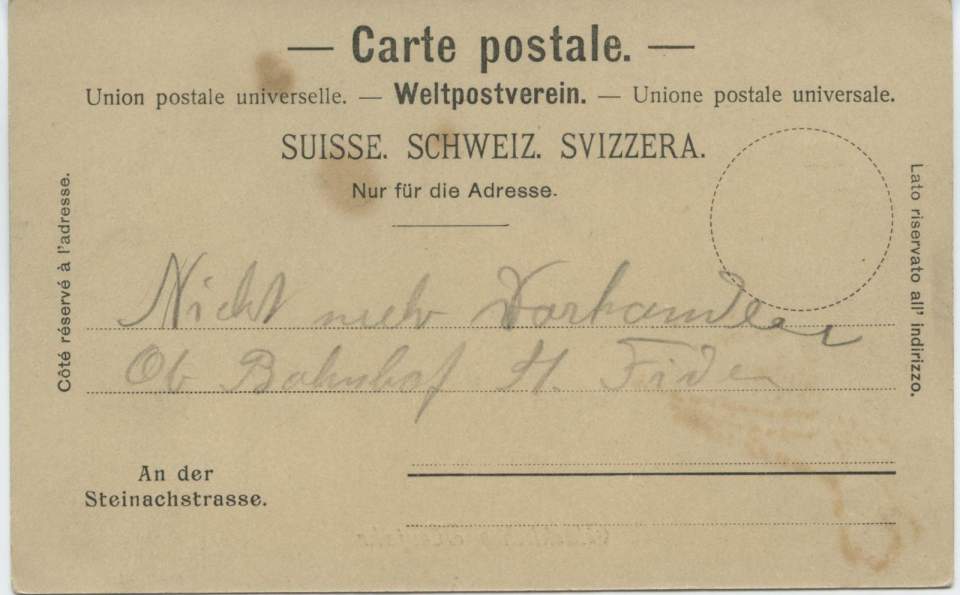 — Carte postale. —
Union postale universelle. — Weltpostverein. — Unione postale universale.
SUISSE. SCHWEIZ. SVIZZERA.
Nur für die Adresse.
Côté réservé à l'adresse.
Lato riservato all' indirizzo.
Nicht mehr Vorhanden
Ob Bahnhof St. Fiden
An der
Steinachstrasse.